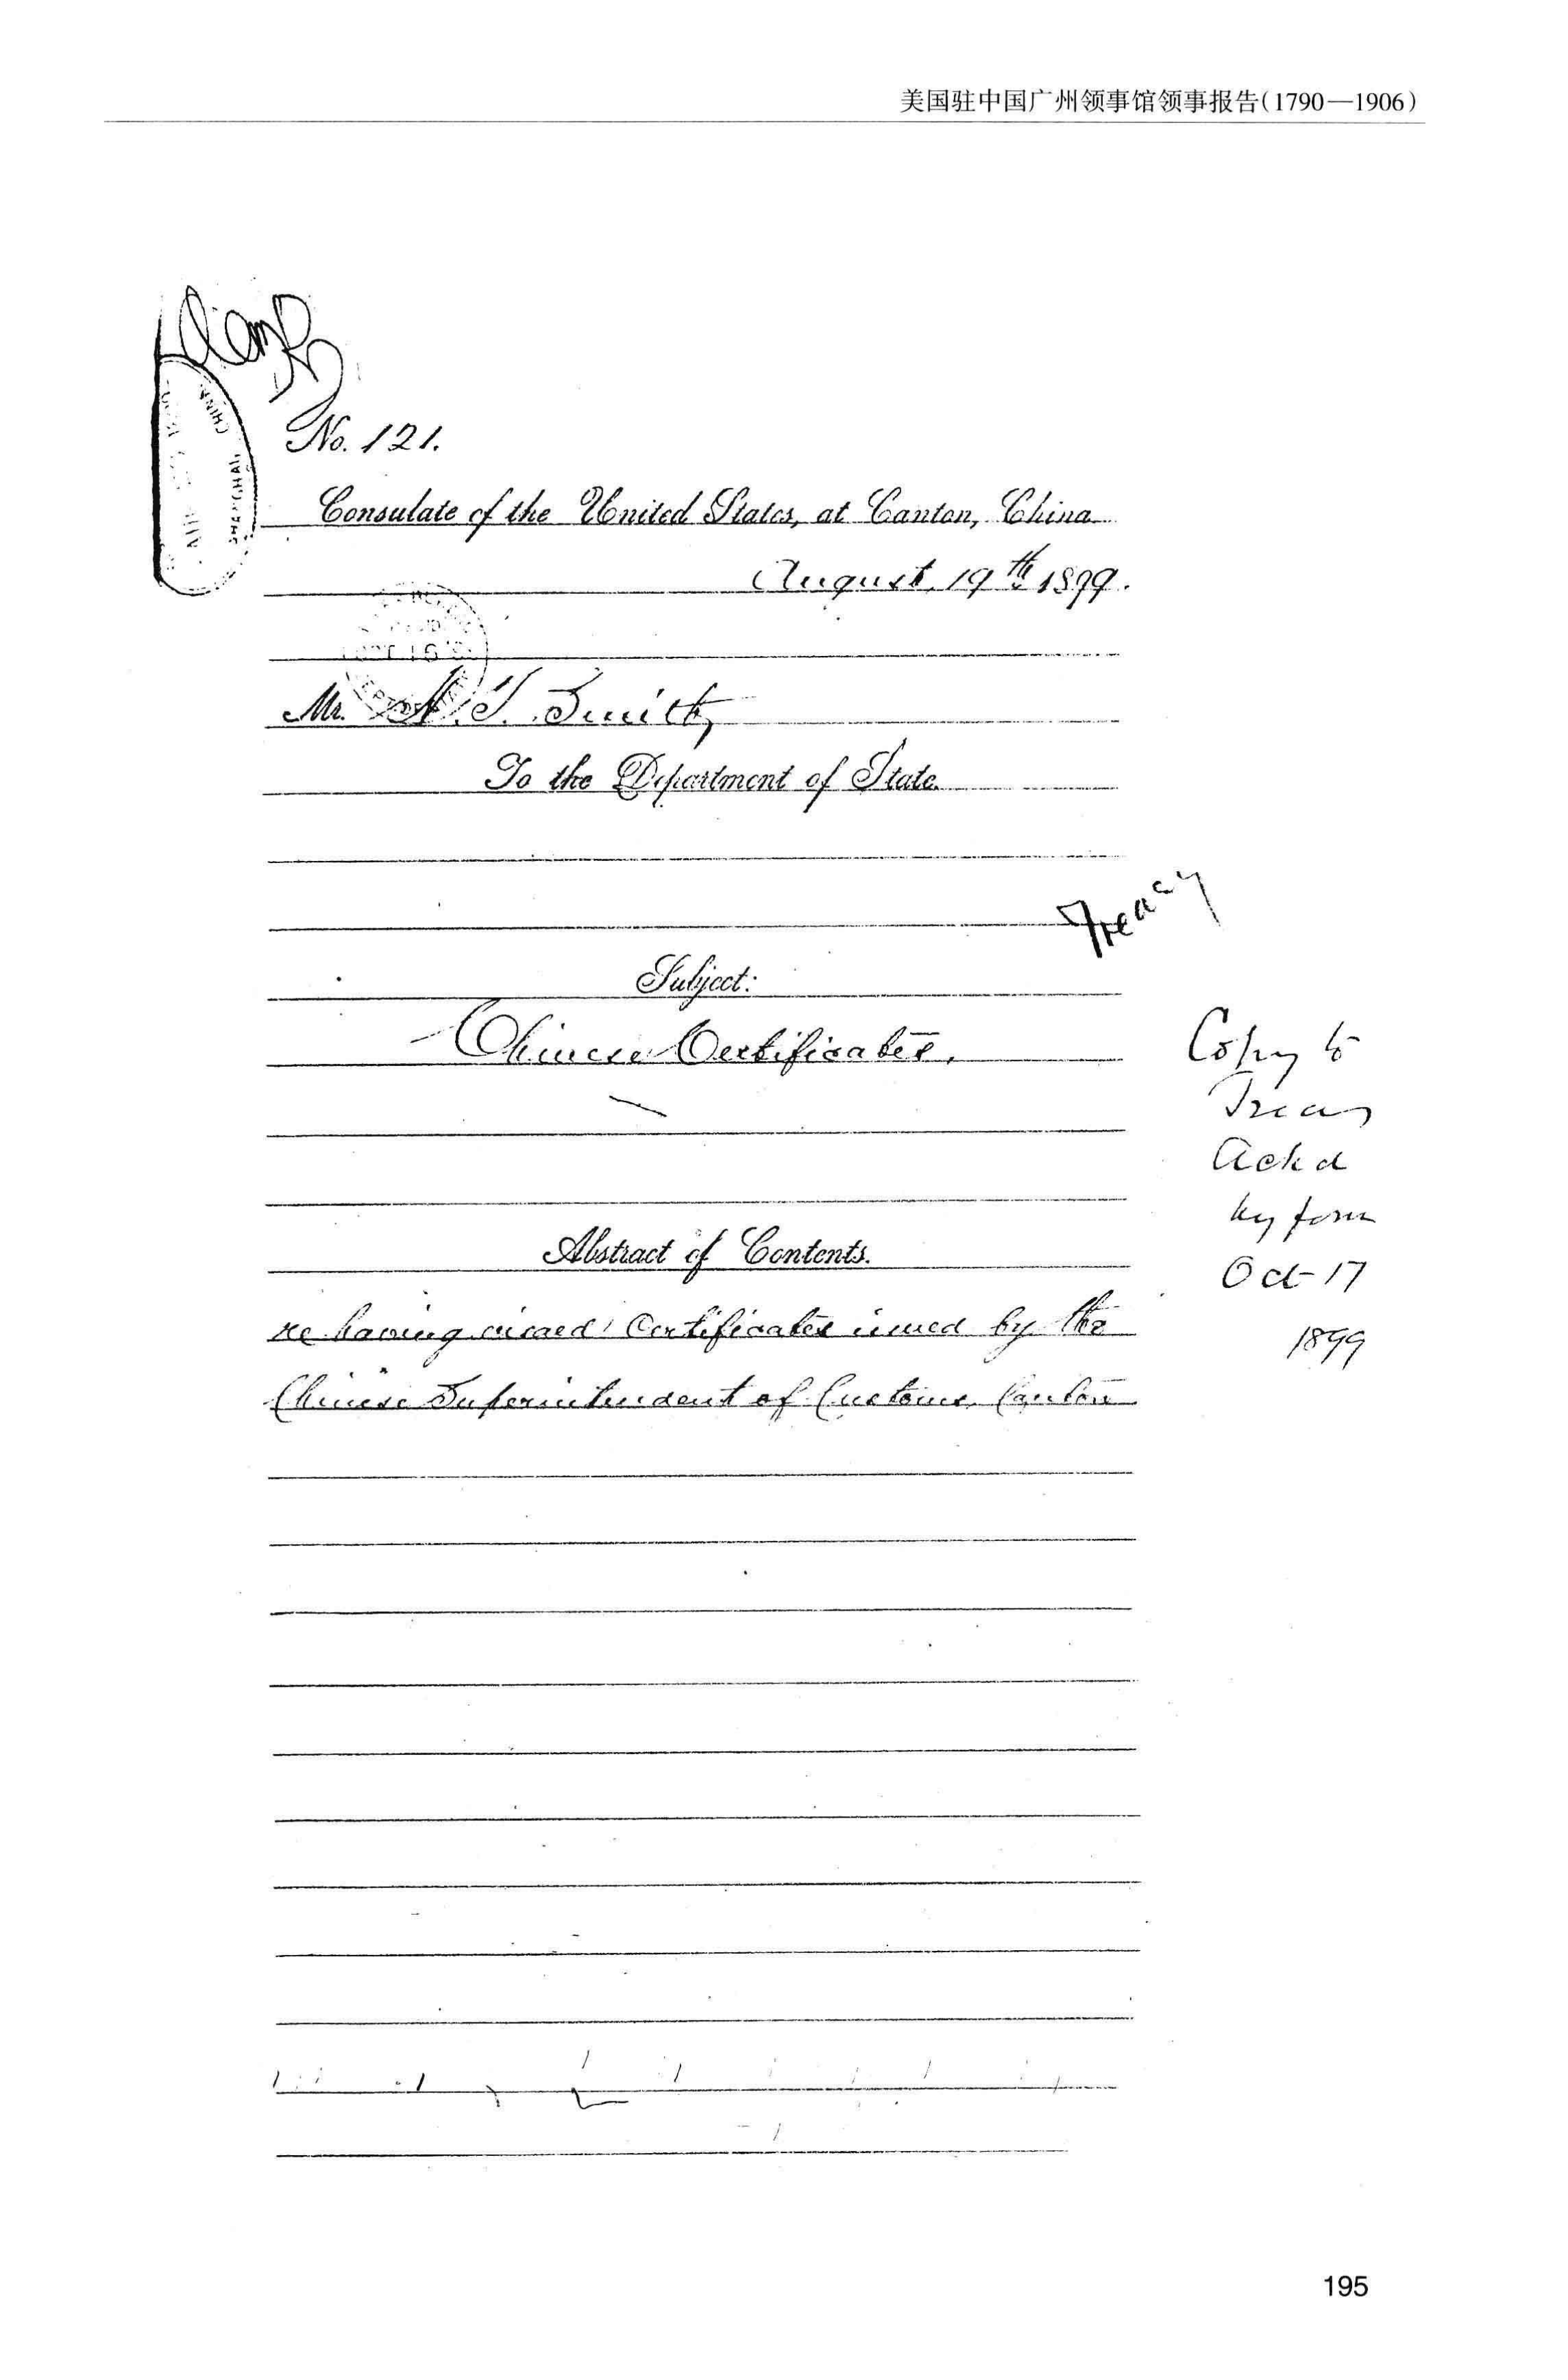 美国驻中国广州领事馆领事报告(1790—1906)
No. 121.
Consulate of the United States, at Canton, China
August, 19th 1899.
CHINA
SHANGHAI
Mr. Smith,
To the Department of State.
Treasy
Subject:
Chinese Certificates.
Copy to
Treas
Ackd
by form
Oct 17
1899
Abstract of Contents.
re having visaed Certificates issued by the
Chinese Superintendent of Customs, Canton
195